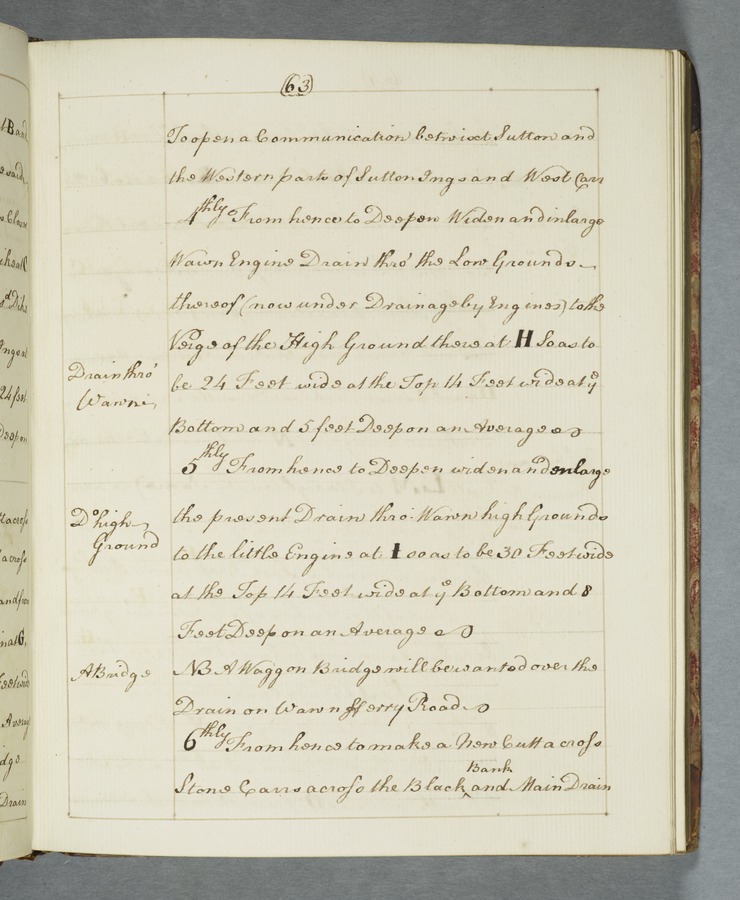 63
To open a Communication betwixt Sutton and
the Western parts of Sutton Ings and West Carr
4thly From hence to Deepen Widen and inlarge
Wawn Engine Drain thro' the Low Grounds
thereof (now under Drainage by Engines) to the
Verge of the High Ground there at H So as to
Drain thro'
be 24 Feet wide at the Top 14 Feet wide at ye
Wawn
Bottom and 5 feet Deep on an Average
5thly From hence to Deepen widen and enlarge
Do high
the present Drain thro' Wawn high Grounds
Ground
to the little Engine at I so as to be 30 Feet wide
at the Top 14 Feet wide at ye Bottom and 8
Feet Deep on an Average
A Bridge
NB A Waggon Bridge will be wanted over the
Drain on Wawn Fferry Road
6thly From hence to make a New Cutt across
Bank
Stone Carrs across the Black ^ and Main Drain